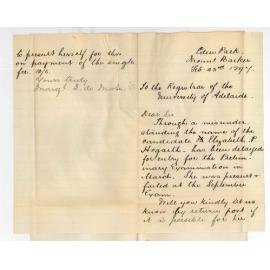 Eden Park,
Mount Barker
Feb. 23rd 1897.
To the Registrar of the
University of Adelaide.
Dear Sir
Through a misunder-
standing the name of the
candidate Elizabeth P.
Hogarth - has been delayed
for entry for the Prelim-
inary Examination in
March. She was present &
failed at the September
Exam.
Will you kindly let us
know by return post if
it is possible for her
to present herself for this
on payment of the single
fee 10/6.
Yours truly